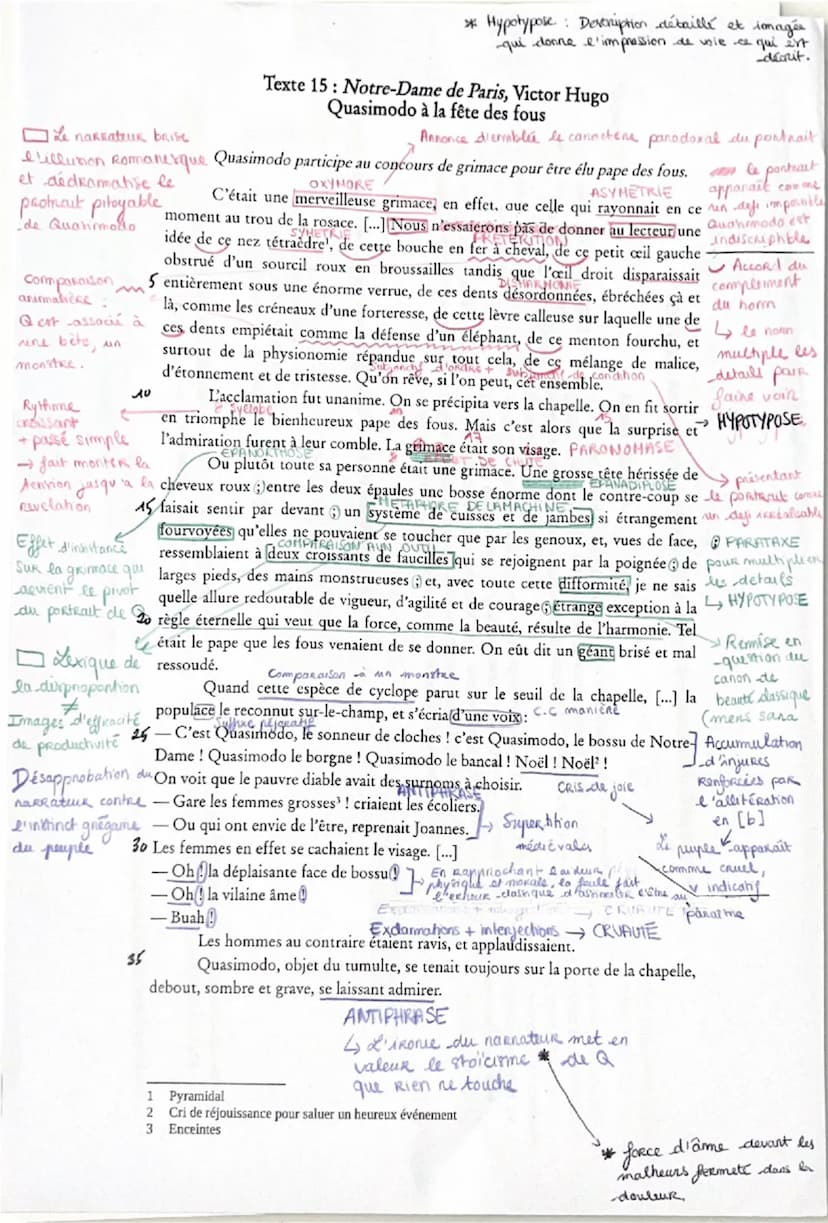 * Hypotypose : Description détaillé et imagée
qui donne l'impression de voie ce qui est
décrit.
Texte 15 : Notre-Dame de Paris, Victor Hugo
Quasimodo à la fête des fous
Le narrateur brise
l'illusion romanesque
et dédramatise le
protrait pitoyable
de Quasimodo
Annonce d'emblée le caractère paradoxal du portrait
Quasimodo participe au concours de grimace pour être élu pape des fous.
le portrait
apparaît comme
un defi impossible
Quasimodo est
indiscriptible
OXYMORE
ASYMETRIE
C'était une merveilleuse grimace, en effet, que celle qui rayonnait en ce
moment au trou de la rosace. [...] Nous n'essaierons pas de donner au lecteur une
SYMETRIE
PRETERITION
idée de ce nez tétraèdre¹, de cette bouche en fer à cheval, de ce petit œil gauche
obstrué d'un sourcil roux en broussailles tandis que l'œil droit disparaissait
DISHARMONIE
5 entièrement sous une énorme verrue, de ces dents désordonnées, ébréchées çà et
là, comme les créneaux d'une forteresse, de cette lèvre calleuse sur laquelle une de
ces dents empiétait comme la défense d'un éléphant, de ce menton fourchu, et
surtout de la physionomie répandue sur tout cela, de ce mélange de malice,
Subjonctif d'ordre + de condition
d'étonnement et de tristesse. Qu'on rêve, si l'on peut, cet ensemble.
Comparaison
animalière :
Q est associé à
une bête, un
monstre.
Accord du
complement
du nom
↳ le nom
multiple les
détails pour
faire voir
→ HYPOTYPOSE
10 L'acclamation fut unanime. On se précipita vers la chapelle. On en fit sortir
en triomphe le bienheureux pape des fous. Mais c'est alors que la surprise et
l'admiration furent à leur comble. La grimace était son visage.
PARONOMASE
EFFET DE CHUTE
Rythme
croissant
+ passé simple
→ fait monter la
tension jusqu'à la
revelation
EPANORTHOSE
Ou plutôt toute sa personne était une grimace. Une grosse tête hérissée de
EPANADIPLOSE
cheveux roux ; entre les deux épaules une bosse énorme dont le contre-coup se
METAPHORE DE LA MACHINE
15 faisait sentir par devant ; un système de cuisses et de jambes si étrangement
fourvoyées qu'elles ne pouvaient se toucher que par les genoux, et, vues de face,
COMPARAISON A UN OUTIL
ressemblaient à deux croissants de faucilles qui se rejoignent par la poignée ; de
larges pieds, des mains monstrueuses ; et, avec toute cette difformité, je ne sais
quelle allure redoutable de vigueur, d'agilité et de courage ; étrange exception à la
20 règle éternelle qui veut que la force, comme la beauté, résulte de l'harmonie. Tel
était le pape que les fous venaient de se donner. On eût dit un géant brisé et mal
ressoudé.
présentant
le portrait comme
un defi irréalisable
; PARATAXE
pour multiplier
les details
↳ HYPOTYPOSE
Effet d'insistance
sur la grimace qui
devient le pivot
du portrait de Q
Lexique de
la disproportion
≠
Images d'efficacité
de productivité
Remise en
question du
canon de
beauté classique
(mens sana
Comparaison à un monstre
Quand cette espèce de cyclope parut sur le seuil de la chapelle, [...] la
populace le reconnut sur-le-champ, et s'écria d'une voix :
C.C manière
Suffixe péjoratif
25 — C'est Quasimodo, le sonneur de cloches ! c'est Quasimodo, le bossu de Notre-
Dame ! Quasimodo le borgne ! Quasimodo le bancal ! Noël ! Noël² !
On voit que le pauvre diable avait des surnoms à choisir.
ANTIPHRASE
CRIS de joie
— Gare les femmes grosses³ ! criaient les écoliers.
— Ou qui ont envie de l'être, reprenait Joannes.
→ Supertition
médiévales
30 Les femmes en effet se cachaient le visage. [...]
— Oh ! la déplaisante face de bossu !
— Oh ! la vilaine âme !
— Buah !
Désapprobation du
narrateur contre
l'instinct grégaire
du peuple
Accumulation
d'injures
renforcées par
l'allitération
en [b]
Le peuple apparaît
comme cruel,
vindicatif
En rapprochant laideur
physique et morale, la foule fait
l'erreur classique d'assimiler l'être au
paraître
Exclamations + interjections → CRUAUTÉ
Les hommes au contraire étaient ravis, et applaudissaient.
35 Quasimodo, objet du tumulte, se tenait toujours sur la porte de la chapelle,
debout, sombre et grave, se laissant admirer.
ANTIPHRASE
↳ L'ironie du narrateur met en
valeur le stoïcisme * de Q
que rien ne touche
1 Pyramidal
2 Cri de réjouissance pour saluer un heureux événement
3 Enceintes
* force d'âme devant les
malheurs fermeté dans la
douleur.